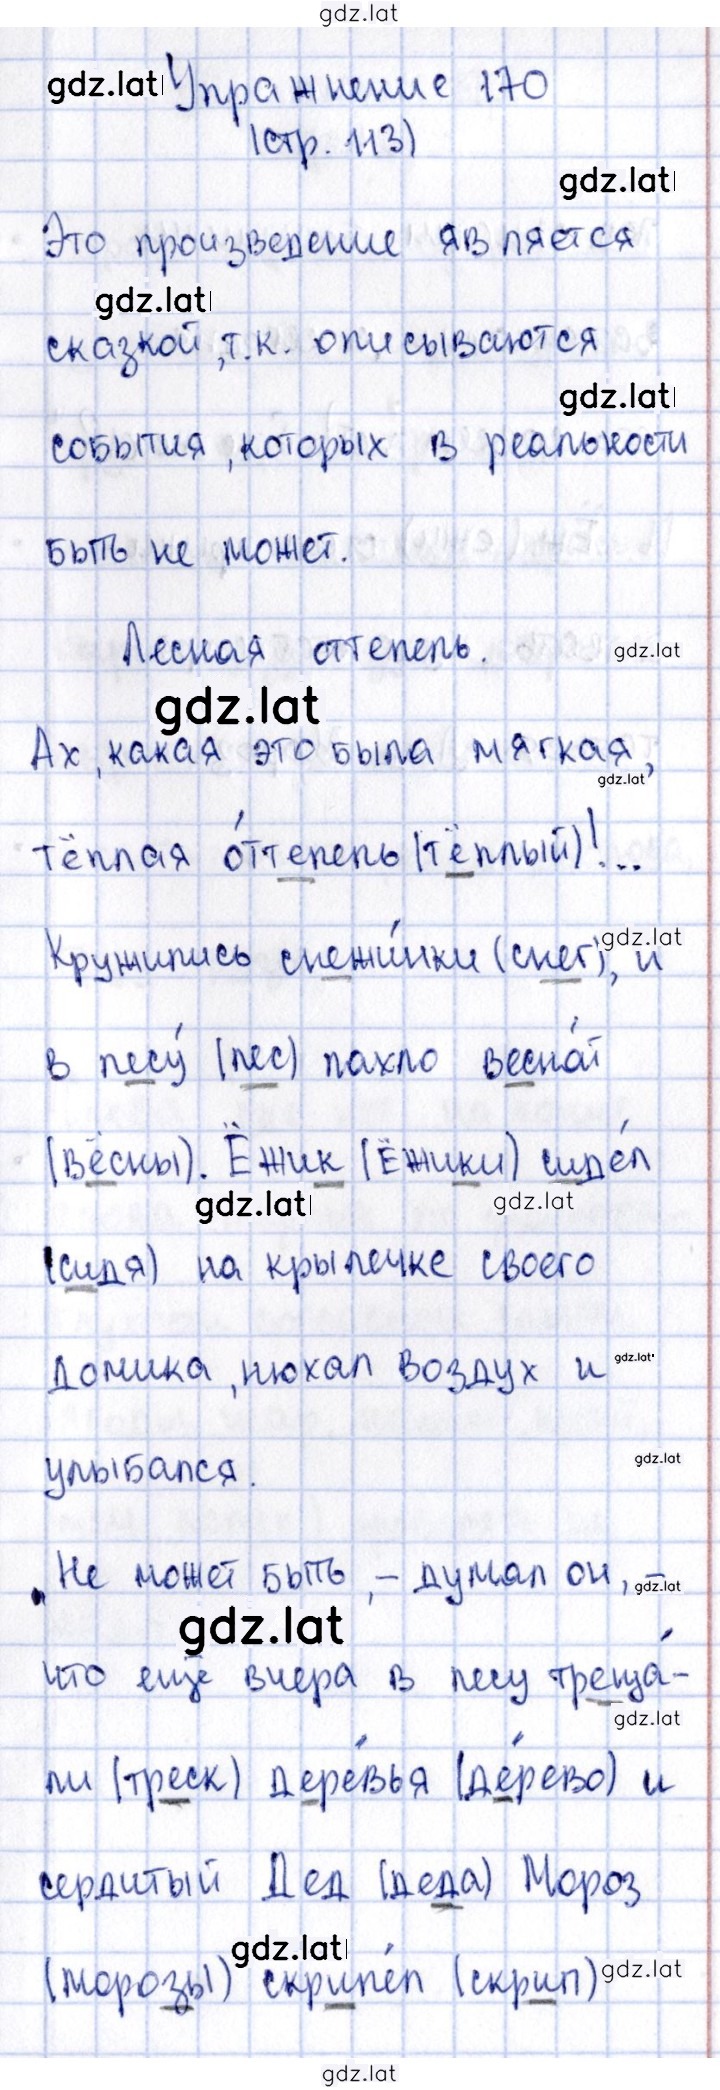 gdz.lat
gdz.lat Упражнение 170
(стр. 113)
gdz.lat
Это произведение является
gdz.lat
сказкой, т.к. описываются
gdz.lat
события, которых в реальности
быть не может.
Лесная оттепель. gdz.lat
gdz.lat
Ах, какая это была мягкая,
gdz.lat
тёплая о́ттепель (тёплый)!...
Кружились снежи́нки (снег), и gdz.lat
в лесу́ (лес) пахло весно́й
(вёсны). Ёжик (Ёжики) сиде́л
gdz.lat gdz.lat
(сидя) на крылечке своего
домика, нюхал воздух и gdz.lat
улыбался. gdz.lat
„Не может быть, – думал он, – gdz.lat
gdz.lat
что ещё вчера в лесу треща́-
gdz.lat
ли (треск) дере́вья (де́рево) и
сердитый Дед (деда) Мороз
gdz.lat
(морозы) скрипе́л (скрип) gdz.lat
gdz.lat